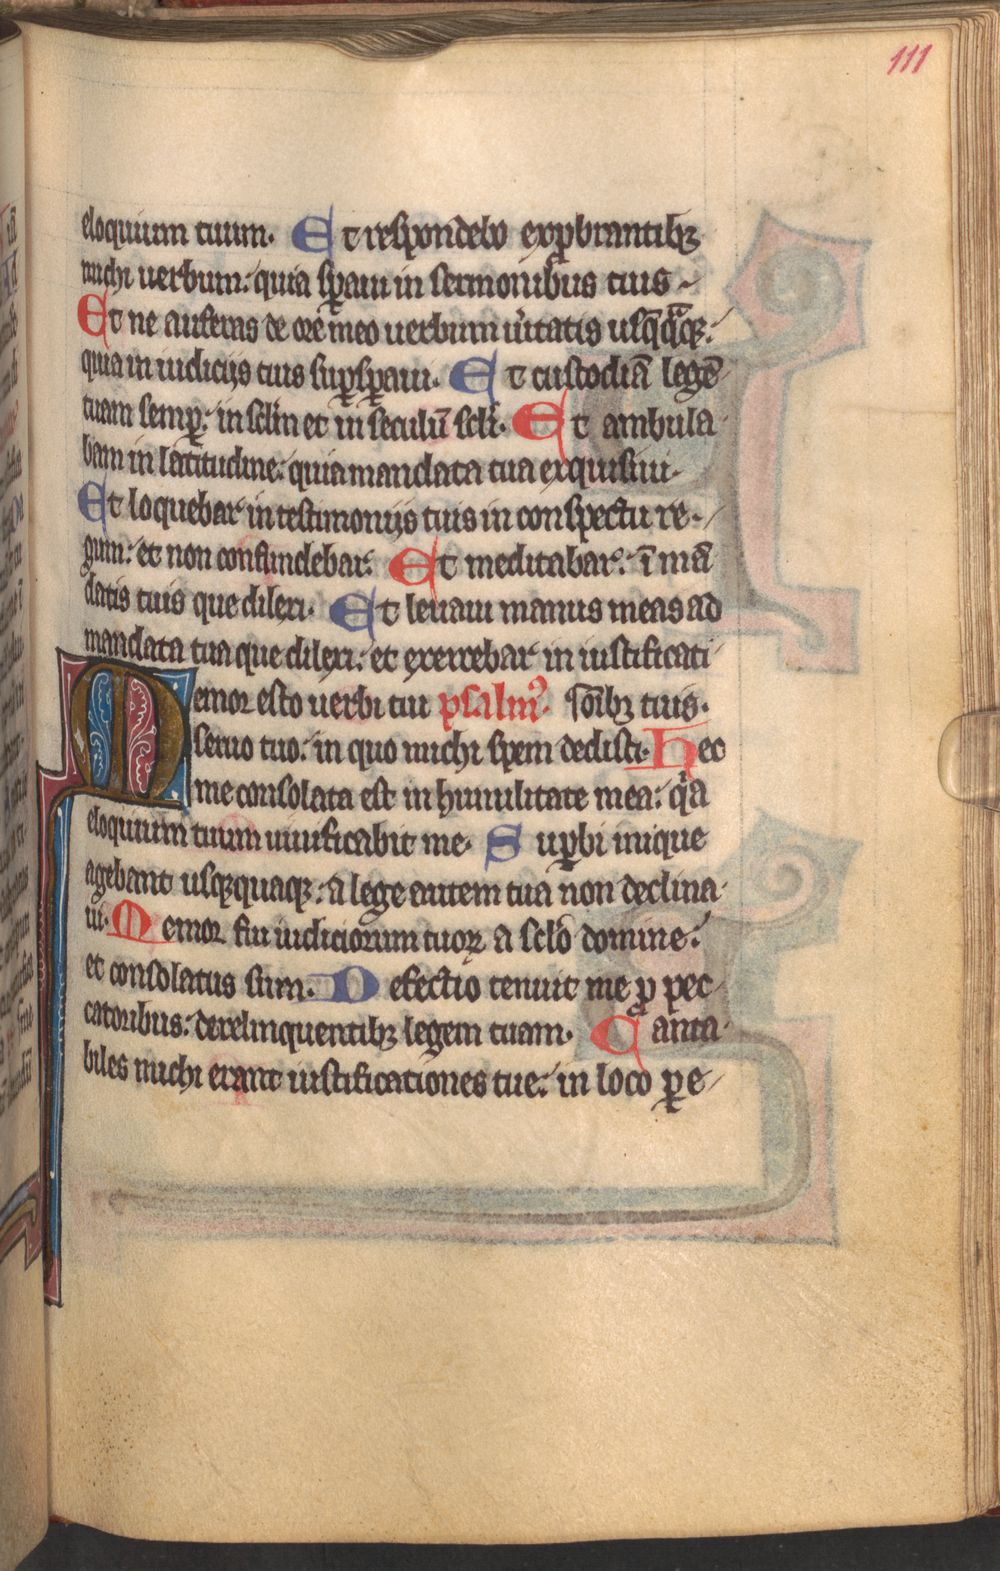 111
eloquium tuum. Et respondebo exꝓbrantibꝫ
michi uerbum: quia sꝑaui in sermonibus tuis
Et ne auferas de ore meo uerbum uͥtatis usq̄qᷓqꝫ:
quia in iudicijs tuis suꝑsꝑaui. Et custodiā legē
tuam semꝑ: in sclm et in seculū scli. Et ambula
bam in latitudine: quia mandata tua exquisiui.
Et loquebar in testimonijs tuis in conspectu re-
gum: et non confundebar. Et meditabar: ī mā
datis tuis que dilexi. Et leuaui manus meas ad
mandata tua que dilexi: et exercebar in iustificati
Memor esto uerbi tui psalmꝰ. onibꝫ tuis.
seruo tuo: in quo michi spem dedisti. Hec
me consolata est in humilitate mea: qͥa
eloquium tuum uiuificabit me. Suꝑbi inique
agebant usqꝫquaqꝫ: a lege autem tua non declina
ui. Memor fui iudiciorum tuoꝝ a sclo domine:
et consolatus sum. Defectio tenuit me ꝓ pec
catoribus: derelinquentibꝫ legem tuam. Canta
biles michi erant iustificationes tue: in loco ꝑe